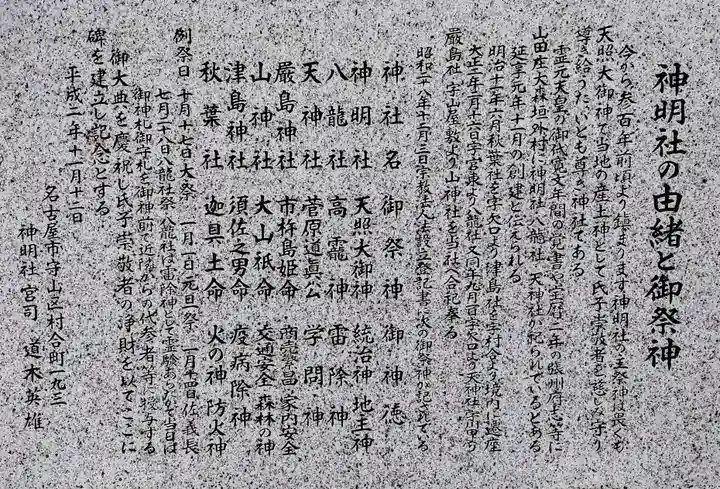 神明社の由緒と御祭神
今から参百年前頃より鎮まります神明社の主祭神は最も
天照大御神で当地の産土神として氏子崇敬者を慈しみ守り
導き給うたいとも尊き神社である。
霊元天皇の御代寛文年間の覚書や宝暦二年の張州府志等に
山田庄大森垣外村に神明社八龍社、天神社が祀られているとある
延享元年十一月の創建と伝えられる
明治十一年六月秋葉社を字矢口より津島社を字村合より境内に遷座
大正二年月十六日字宮東の八龍社、同年九月日字天神社字
厳島社、字山屋敷より山神社を当社へ合祀奉る
昭和二八年十二月三日宗教法人法設立登記書に次の御祭神が記されている
神社名 御祭神 御神徳
神明社 天照大御神 統治神 地主神
八龍社 高龗神 雷除神
天神社 菅原道真公 学問神
厳島神社 市杵島姫命 商売繁昌 家内安全
山神社 大山祇命 交通安全 森林の神
津島神社 須佐之男命 疫病除神
秋葉社 迦具土命 火の神 防火神
例祭日 十月十七日大祭 一月一日元旦祭 一月十四日佐義長
七月二八日八龍社祭、八龍社は雷除神として霊験あらたかで当日は
御神札御花を御神前に近隣からの代参者等に授与する
御大典を慶祝し氏子崇敬者の浄財を以てここに
碑を建立し記念とする
平成二年十一月十二日
名古屋市守山区村合町一九三
神明社 宮司 道木英雄